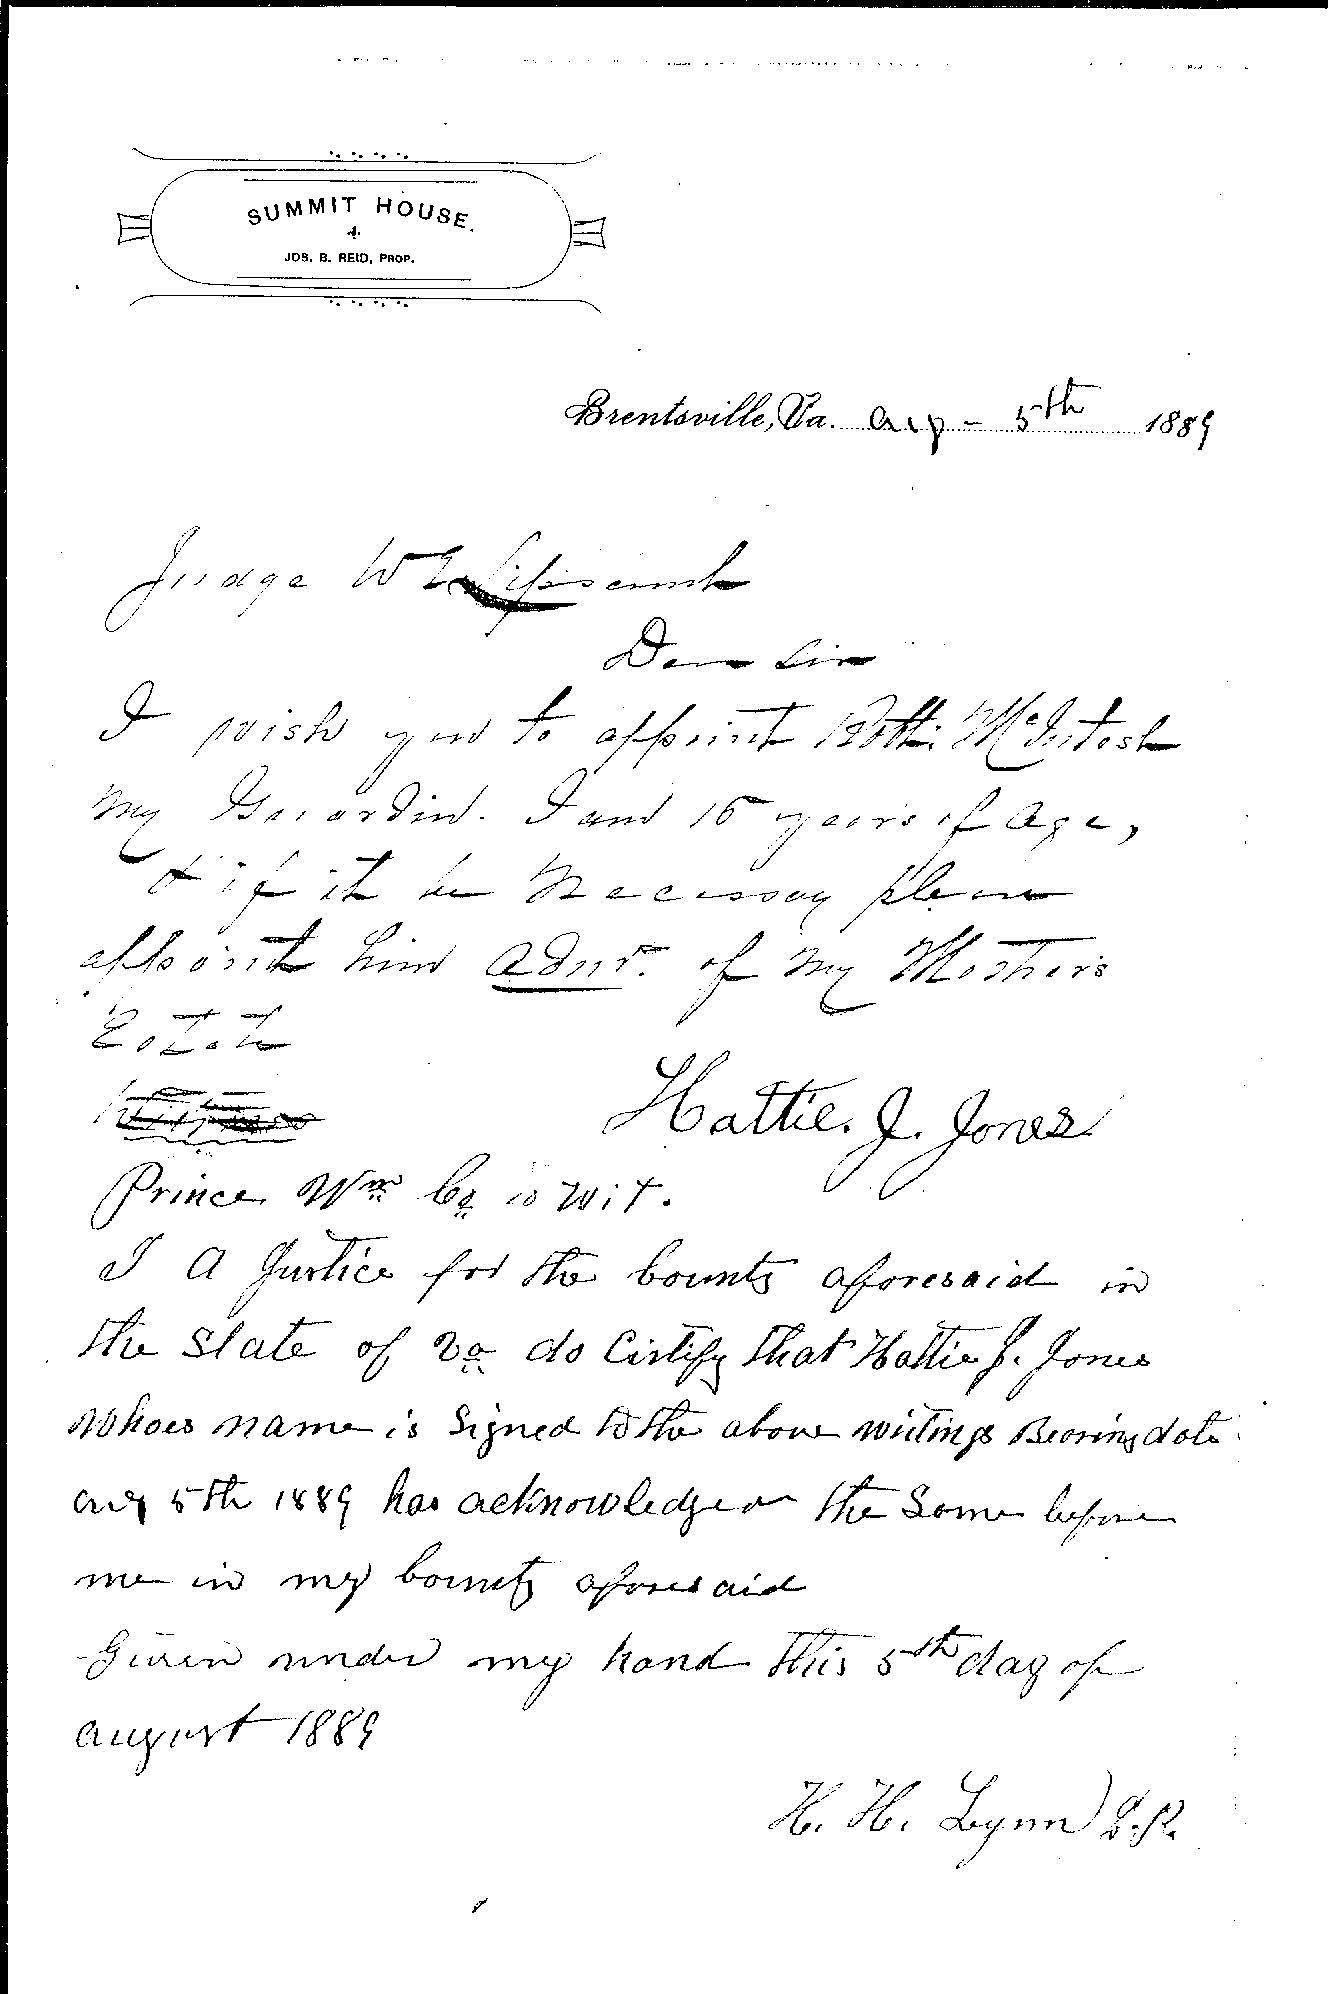 SUMMIT HOUSE.
JOS. B. REID, PROP.
Brentsville, Va. Aug - 5th 1889
Judge W E Lipscomb
Dear Sir
I wish you to appoint Robt. McIntosh
my Guardin. I am 15 years of Age,
& if it be Necessay please
appoint him Admr. of my Mothers
Estate
Hattie. J. Jones
Prince Wm Co to wit.
I A Justice for the County aforesaid in
the State of Va do Certify that Hattie J. Jones
Whoes name is Signed to the above writings Bearing date
Aug 5th 1889 has acknowledged the Same before
me in my County aforesaid
Given under my hand this 5th day of
August 1889
H. H. Lynn J.P.